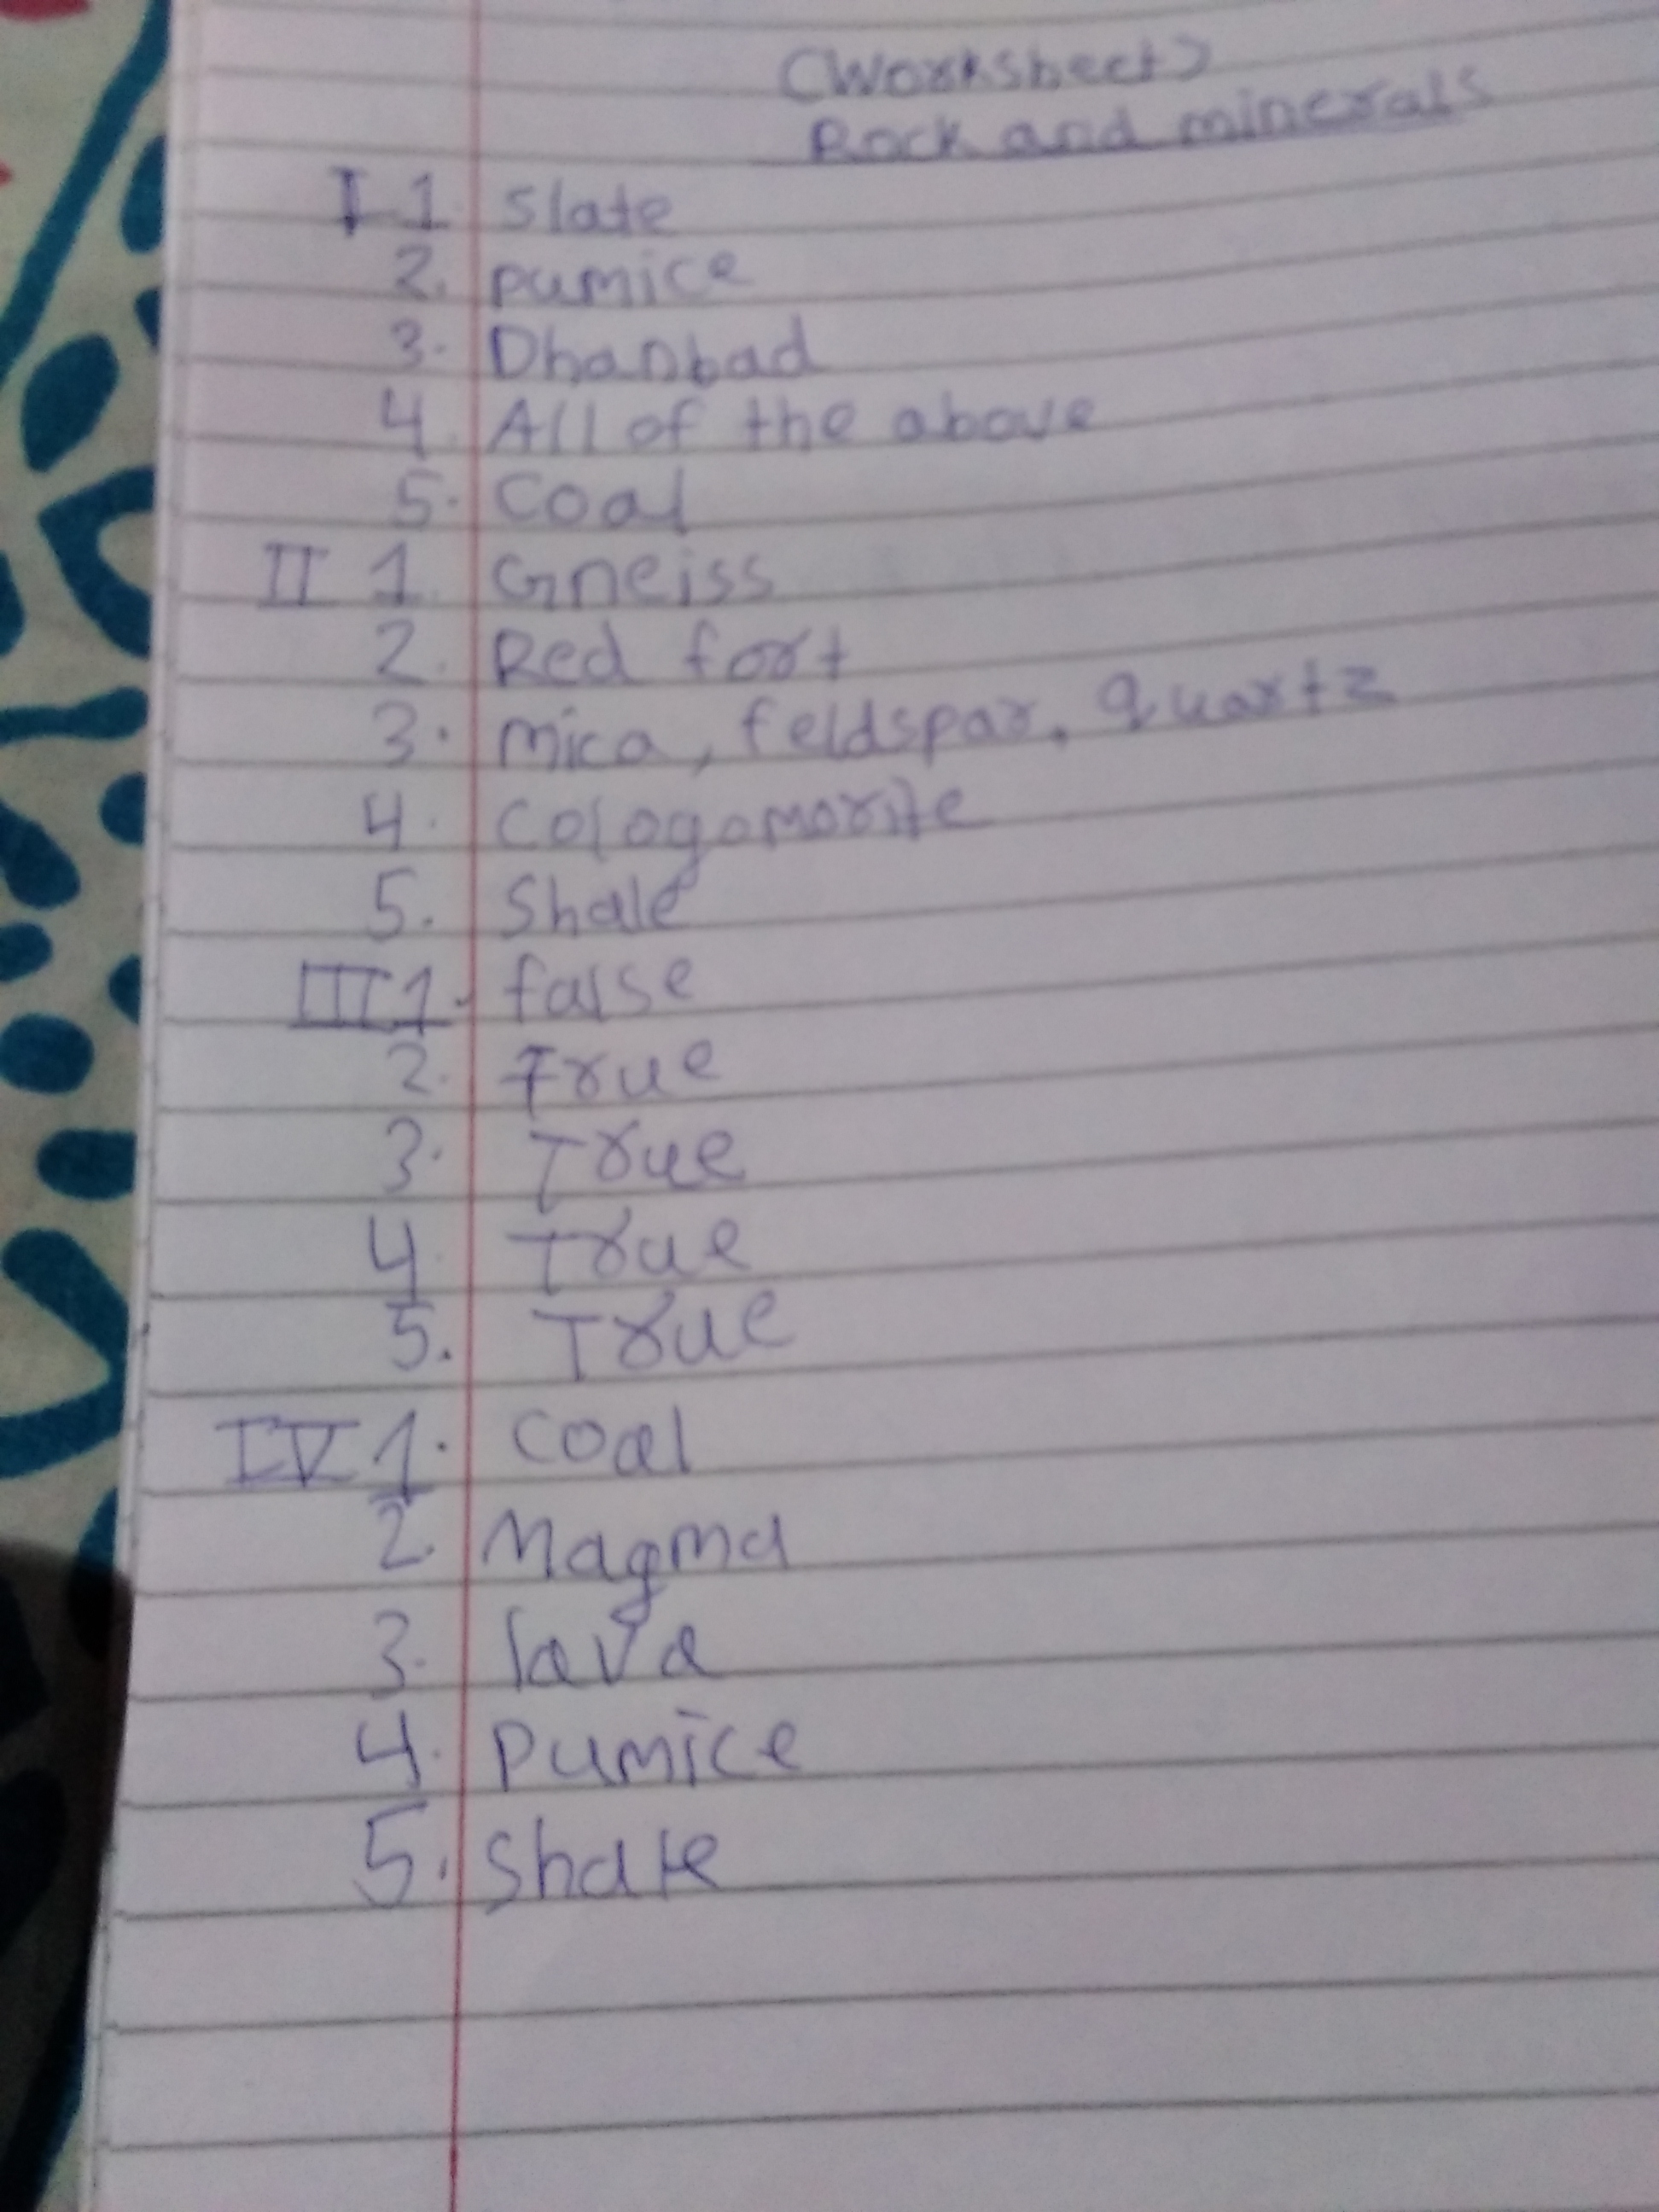 (Worksheet)
Rock and minerals
I 1 Slate
2. pumice
3. Dhanbad
4. All of the above
5. Coal
II 1. Gneiss
2. Red fort
3. mica, feldspar, quartz
4. Cologomorite
5. Shale
III 1. false
2. True
3. True
4. True
5. True
IV 1. Coal
2. Magma
3. lava
4. Pumice
5. Shale